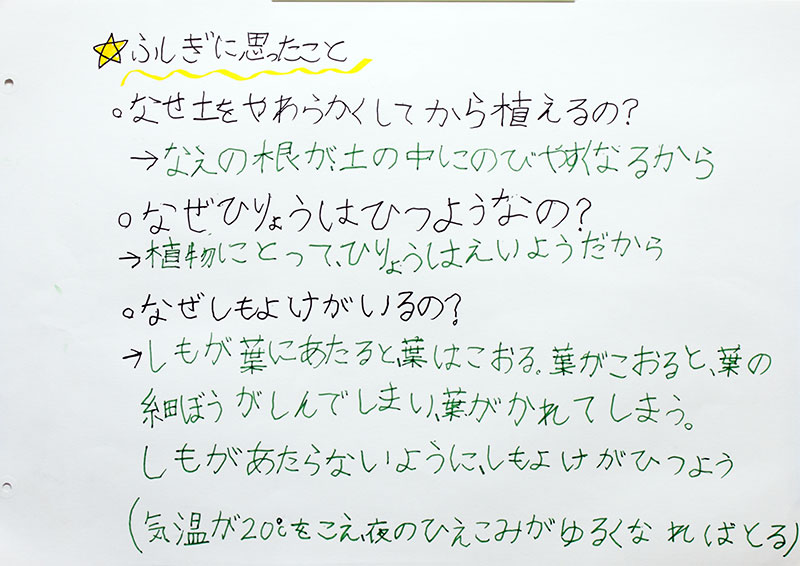 ☆ふしぎに思ったこと
○なぜ土をやわらかくしてから植えるの?
→なえの根が、土の中にのびやすくなるから
○なぜひりょうはひつようなの?
→植物にとって、ひりょうはえいようだから
○なぜしもよけがいるの?
→しもが葉にあたると、葉はこおる。葉がこおると、葉の
細ぼうがしんでしまい、葉がかれてしまう。
しもがあたらないように、しもよけがひつよう
(気温が20℃をこえ、夜のひえこみがゆるくなればとる)